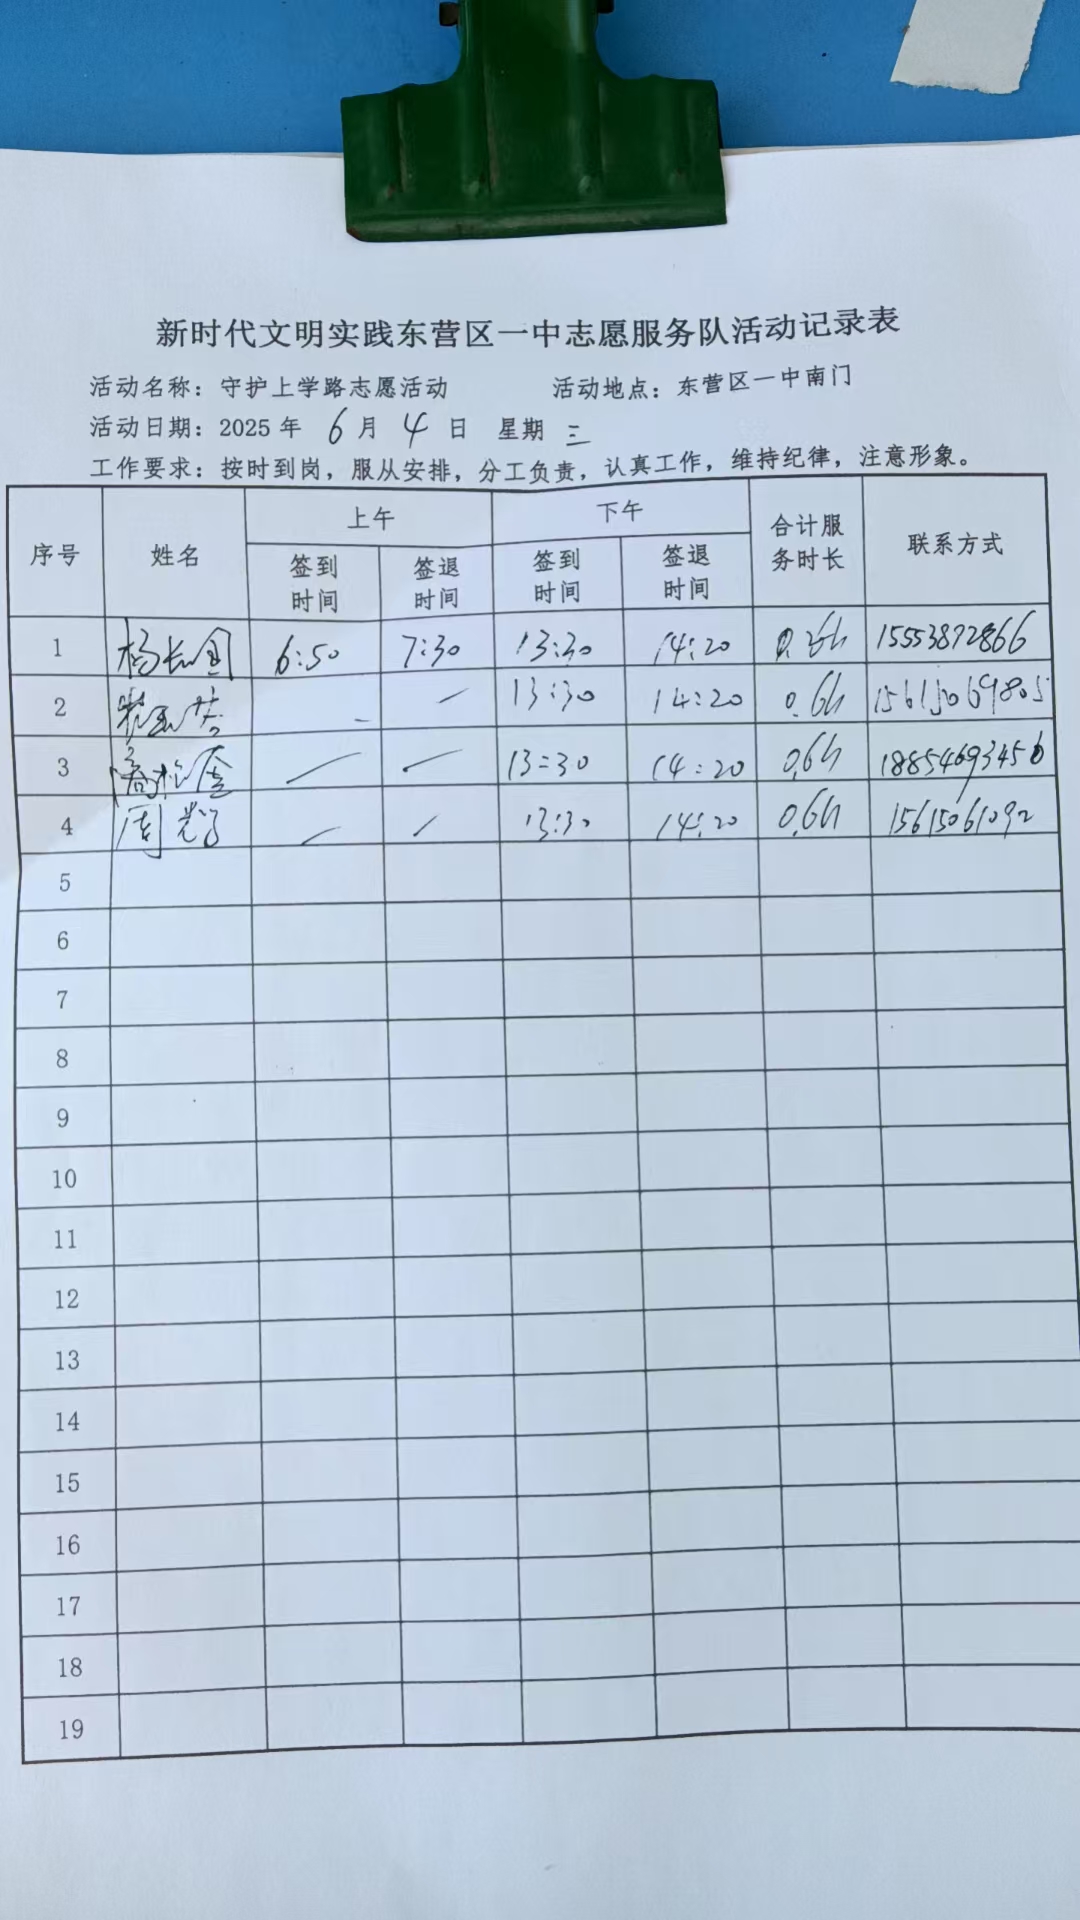 新时代文明实践东营区一中志愿服务队活动记录表
活动名称：守护上学路志愿活动 活动地点：东营区一中南门
活动日期：2025年 6月 4日 星期三
工作要求：按时到岗，服从安排，分工负责，认真工作，维持纪律，注意形象。
序号 姓名 上午 下午 合计服务时长 联系方式
签到时间 签退时间 签到时间 签退时间
1 6:50 7:30 13:30 14:20 15553872866
2 13:30 14:20 0.6h
3 13:30 14:20 0.6h 18854693456
4 周 13:30 14:20 0.6h 15615061092
5
6
7
8
9
10
11
12
13
14
15
16
17
18
19